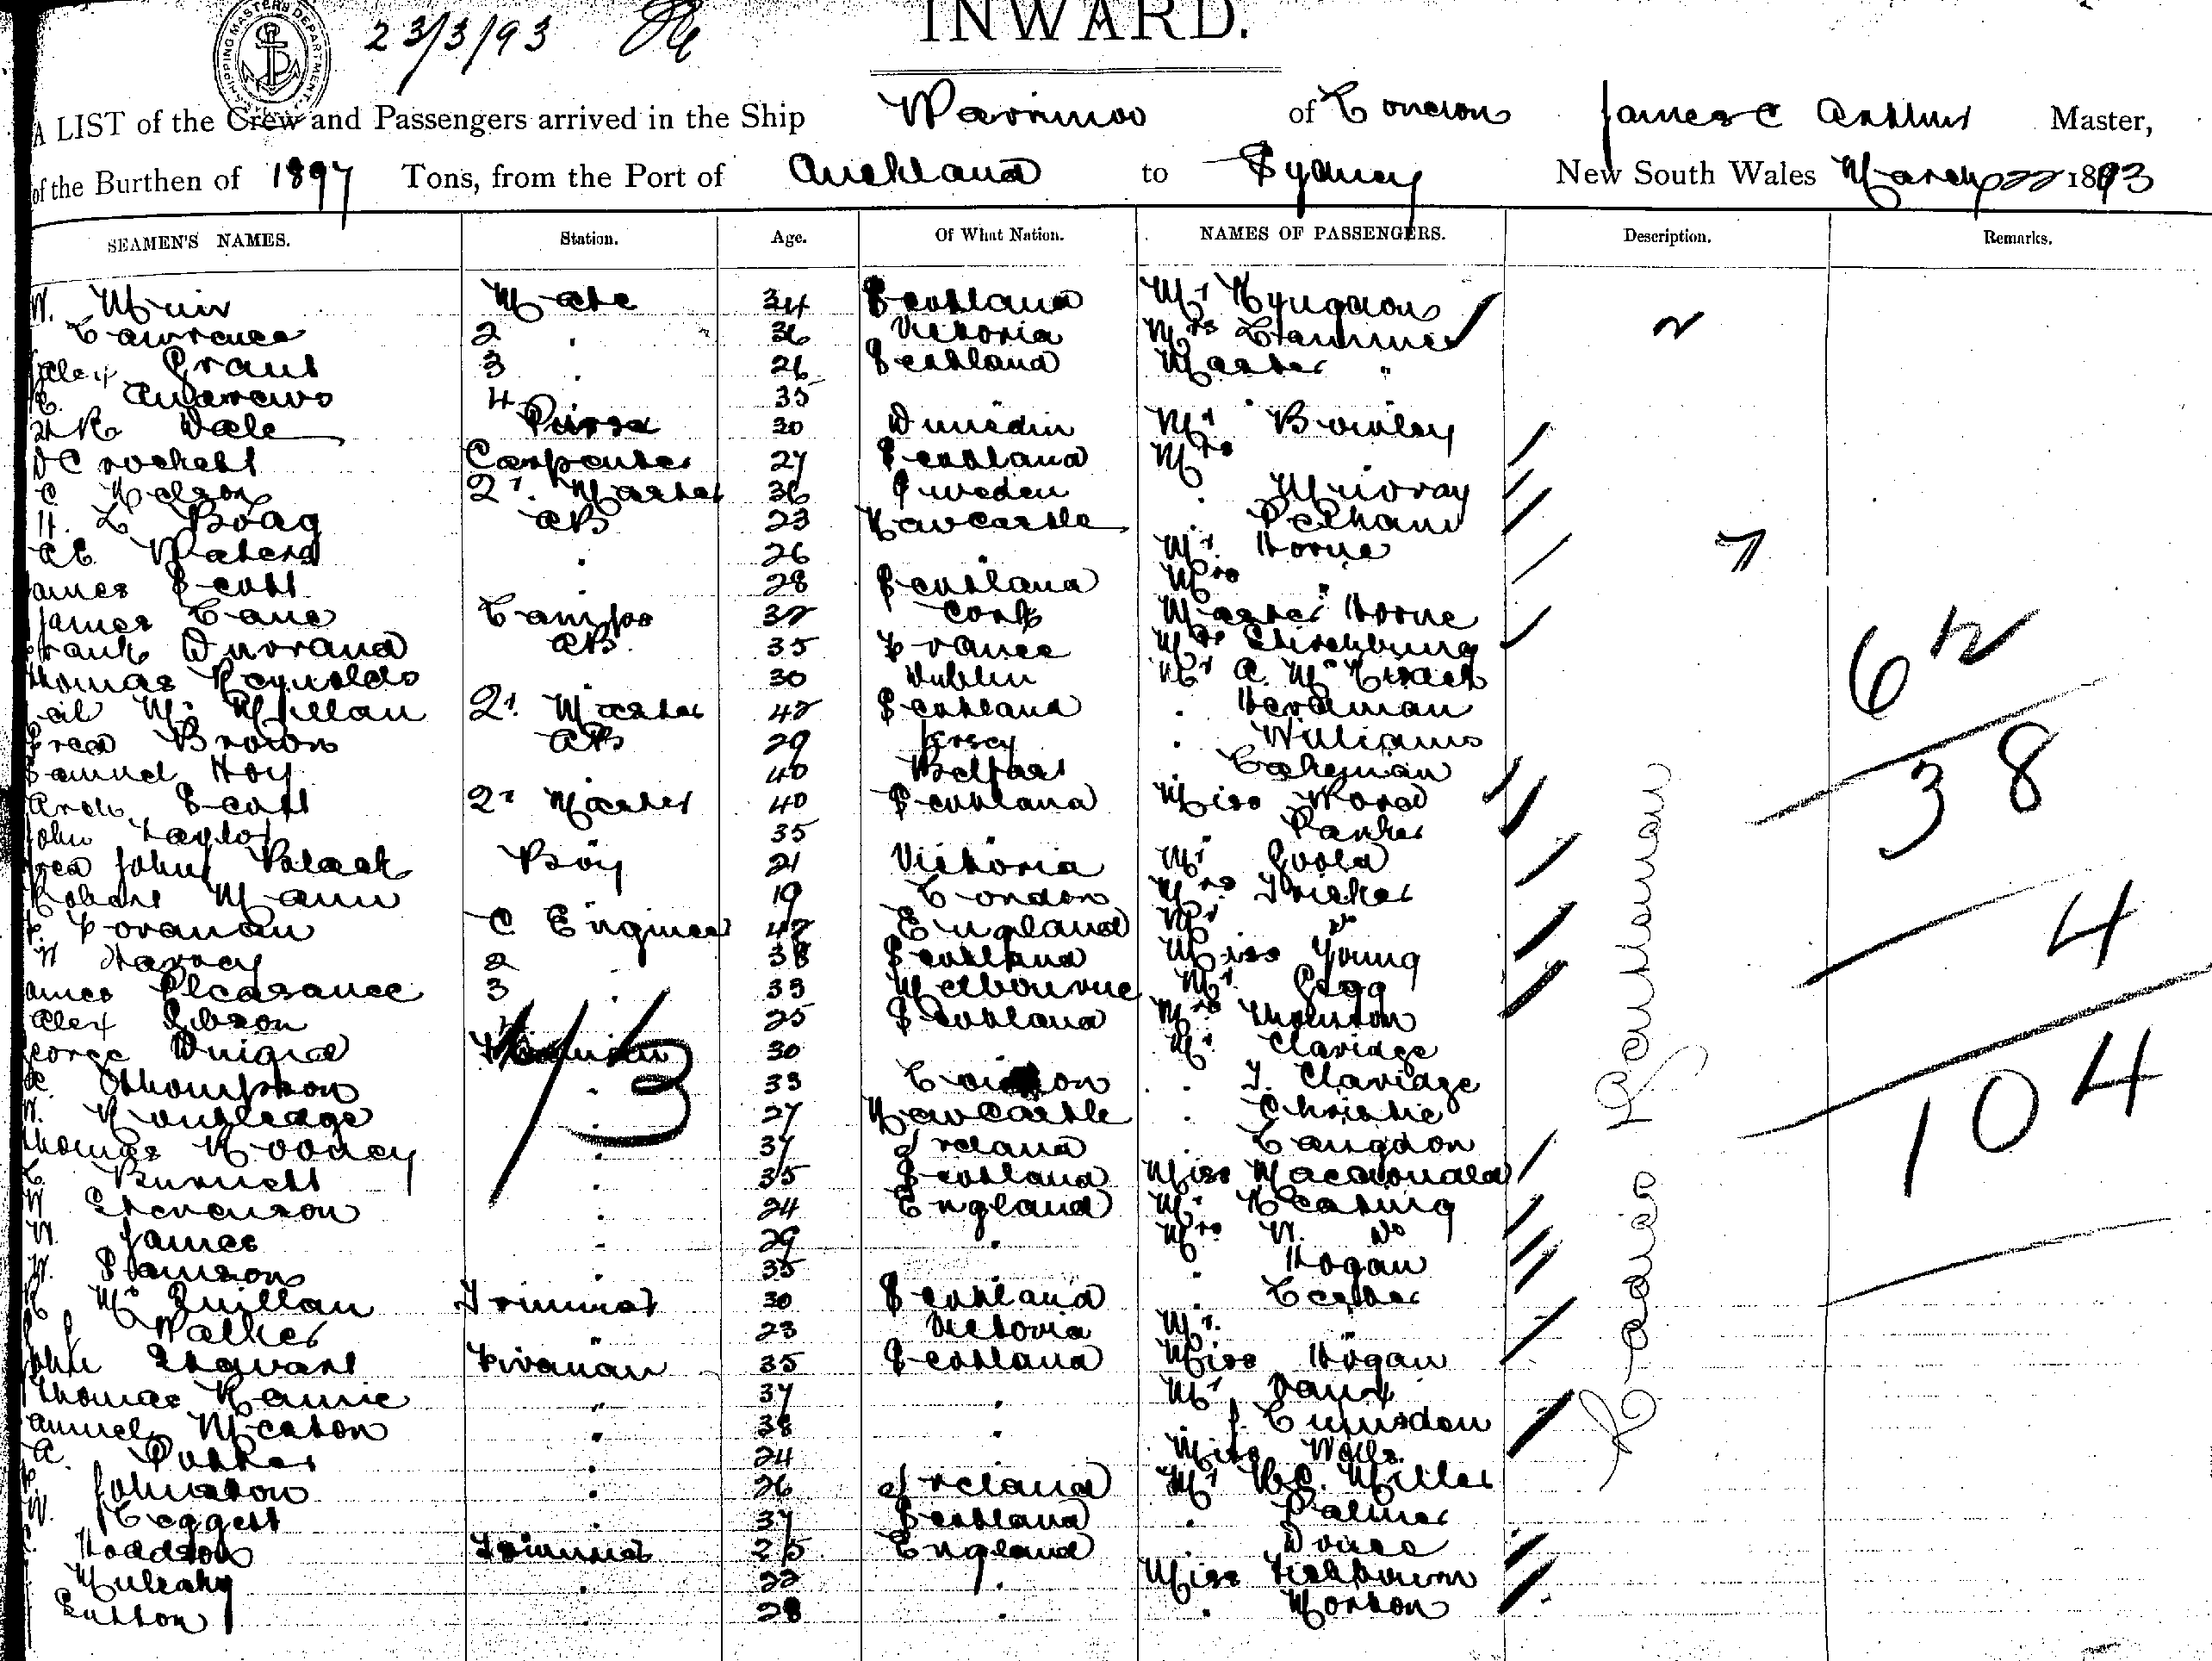 SHIPPING MASTERS DEPARTMENT
23/3/93
INWARD.
A LIST of the Crew and Passengers arrived in the Ship Warrimoo of London James C Arthur Master,
of the Burthen of 1897 Tons, from the Port of Auckland to Sydney New South Wales March 22 1893
SEAMEN'S NAMES. Station. Age. Of What Nation. NAMES OF PASSENGERS. Description. Remarks.
W. Muir Mate 34 Scotland Mr
Lawrence 2 " 36 Victoria Mrs 2
Alex Grant 3 " 26 Scotland Master "
Andrews 4 35 "
Dale Purser 30 Dunedin Mr Bowley
D Crockett Carpenter 27 Scotland Mrs
C Nelson Qr. Master 36 Sweden " Murray
H. L Boag AB 23 Newcastle " Pelham
Waters " 26 " Mr. Horne 7
James Scott 28 Scotland Mrs "
James Lane Lamps 32 Cork Master Horne
Frank Durrand AB 35 France Mrs
Thomas Reynolds " 30 Dublin Mr A.
Neil McMillan Qr. Master 42 Scotland " Herdman
Fred Brown AB 29 Jersey " Williams
Samuel Hoy 40 Belfast " Lakeman
Arch. Scott Qr Master 40 Scotland Miss Word
John Taylor 35 " Parker
Fred John Black Boy 21 Victoria Mr Goold
Robert Mann 19 London Mrs Tricker
Foreman C Engineer 42 England Mr Do
W Harvey 2 38 Scotland Miss Young
James Pleasance 3 " 33 Melbourne Mr. Gegg
Alex Gibson 4 25 Scotland Mrs Thornton
George Fireman 30 Mr. Claridge
Thompson " 33 London " T. Claridge
W. Routledge " 27 Newcastle " Christie
Thomas Rooney " 37 Ireland " Langdon
Burnett " 35 Scotland Miss Macdonald
W Stevenson " 24 England Mr Keating
W. James " 29 " Mrs W. Do
W. Samson " 35 " " Hogan
McQuillan Trimmer 30 Scotland "
Walker " 23 Victoria Mr. "
John Stewart Fireman 35 Scotland Miss Hogan
Thomas Rannie " 37 " Mr
Samuel Meaton " 38 " " J. Lumsden
A. Potter " 24 " Miss Wells
Johnston " 26 Ireland Mr Miller
W. Leggett " 37 Scotland " Palmer
Hoddson Trimmer 25 England "
Mulcahy " 22 " Miss
Sutton " 28 " " Morton
13
Ladies Gentleman
62
38
4
104